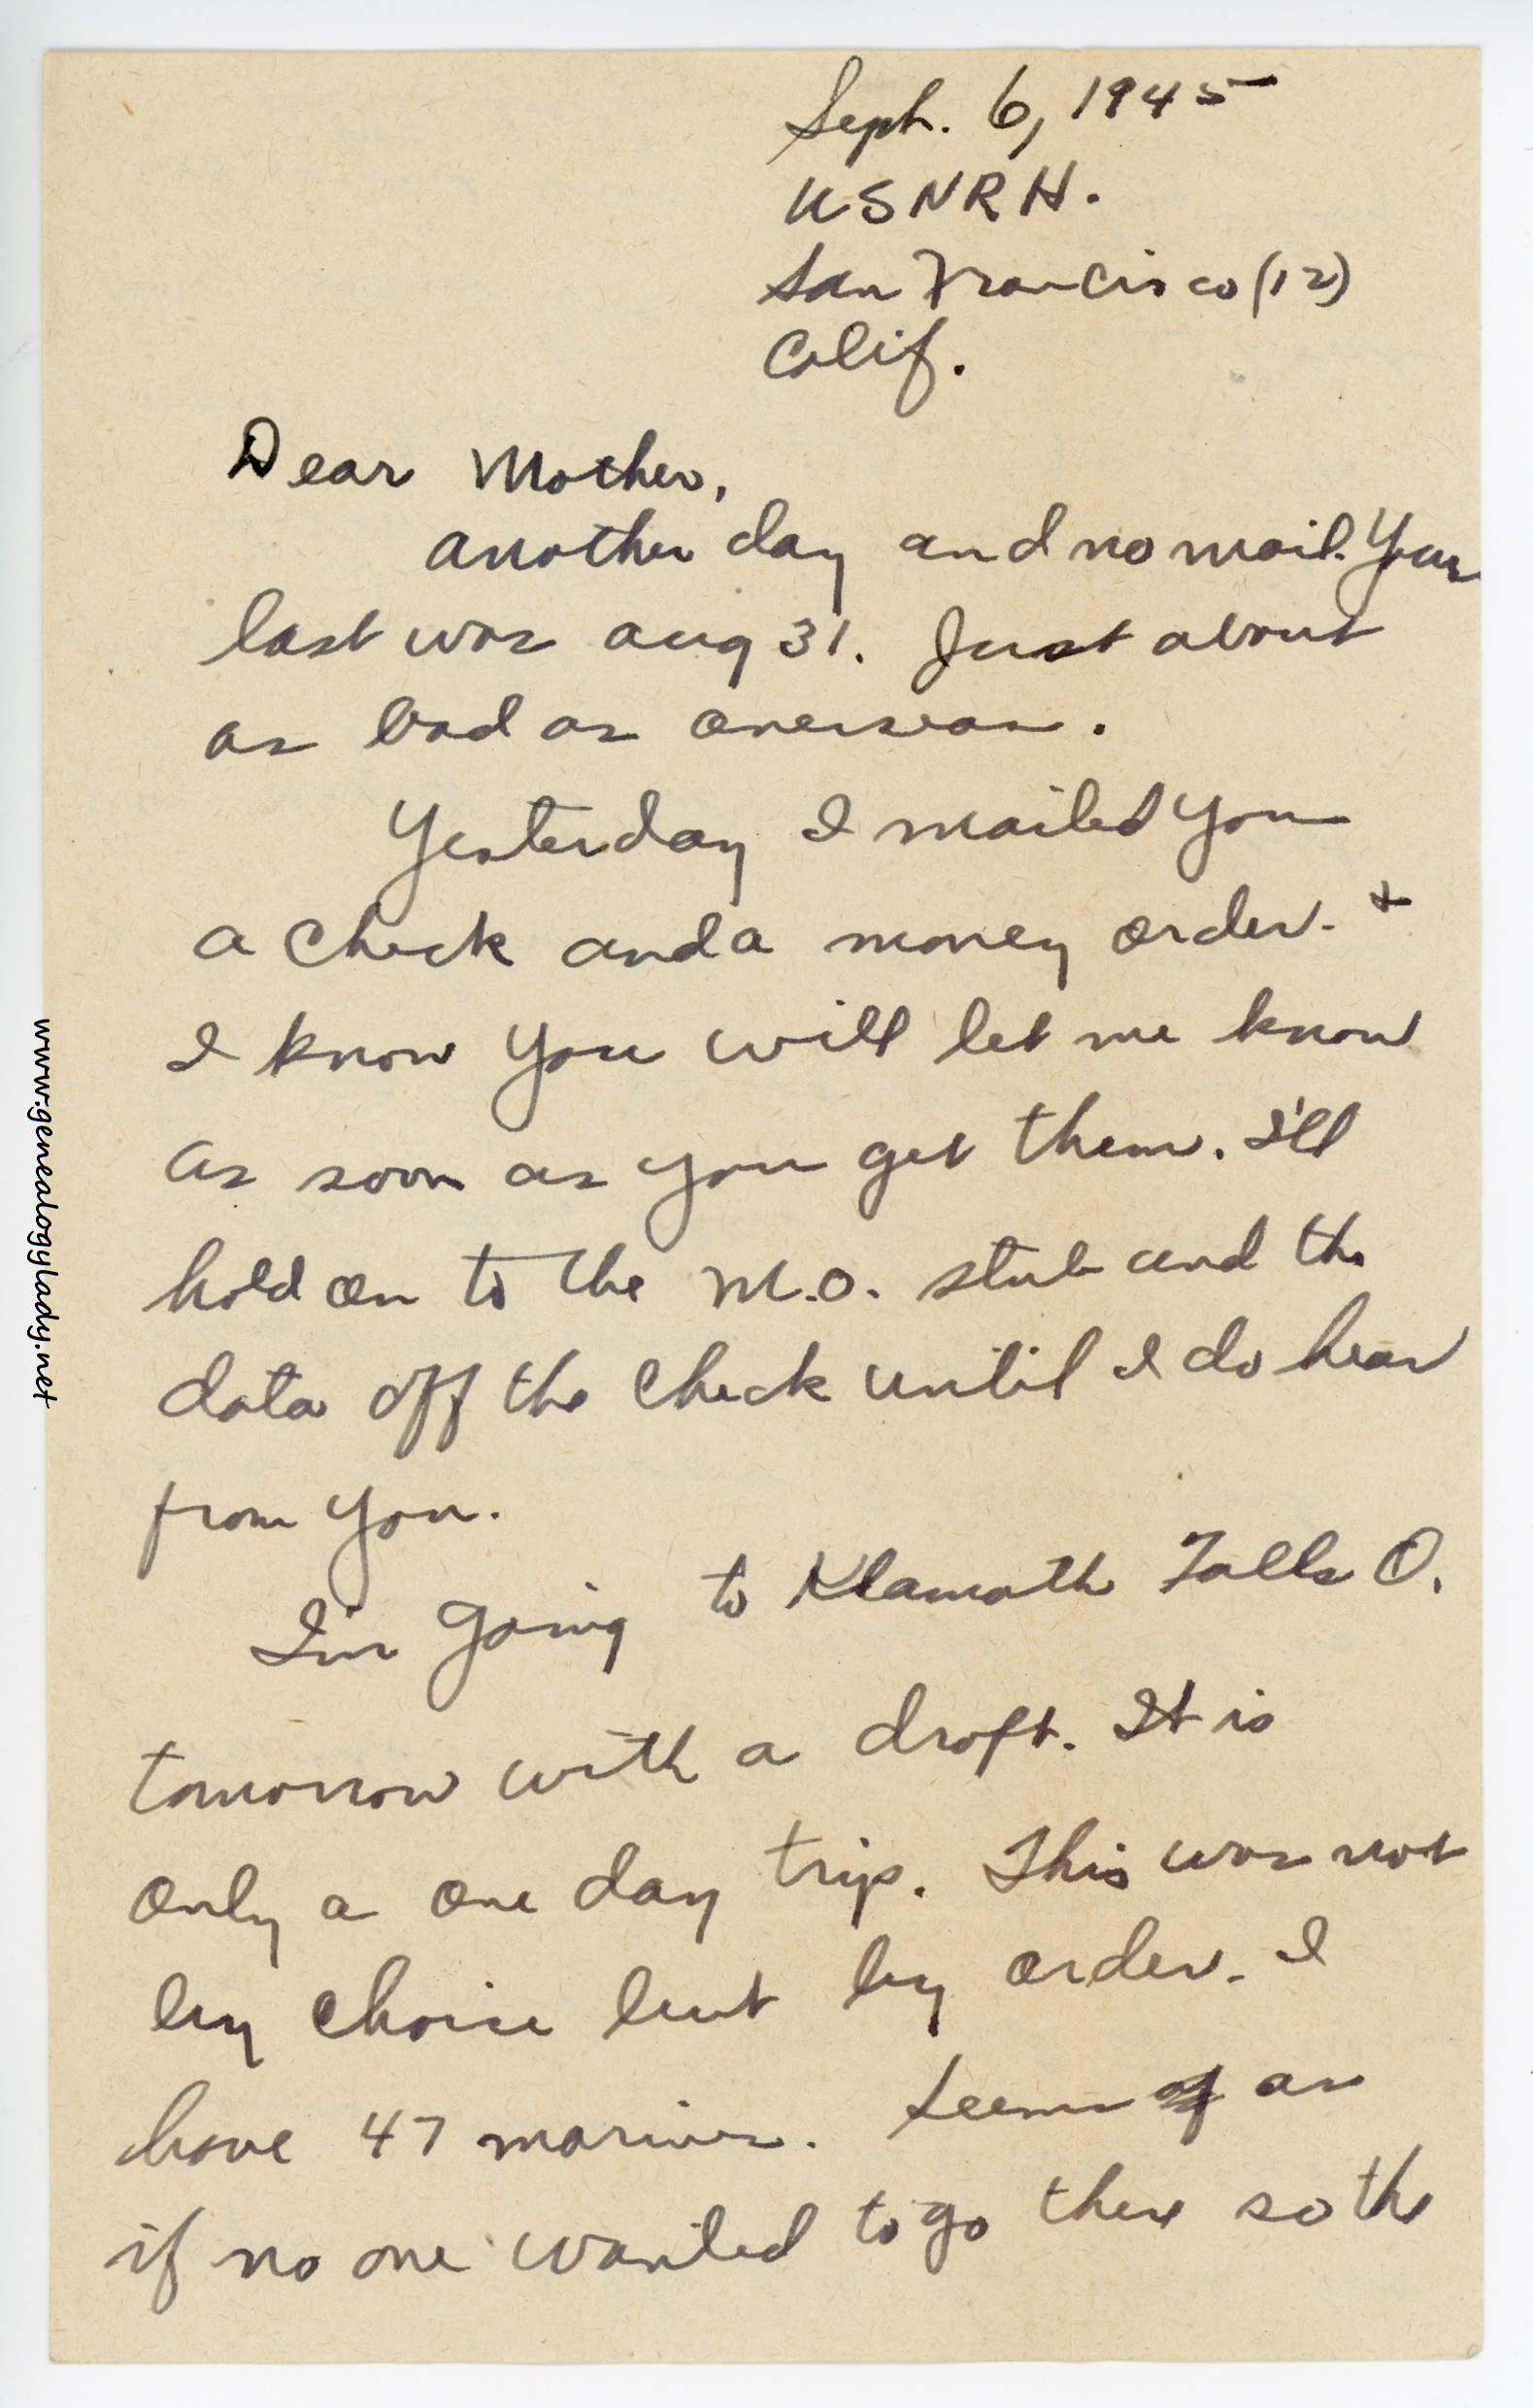 Sept. 6, 1945
USNRH.
San Francisco (12)
Calif.
Dear Mother,
Another day and no mail. Your
last was Aug 31. Just about
as bad as overseas.
Yesterday I mailed you
a check and a money order. +
I know you will let me know
as soon as you get them. I'll
hold on to the M.O. stub and the
data off the check until I do hear
from you.
I'm going to Klamath Falls O.
tomorrow with a draft. It is
only a one day trip. This was not
by choice but by order. I
have 47 marines. Seems as
if no one wanted to go there so the
www.genealogylady.net